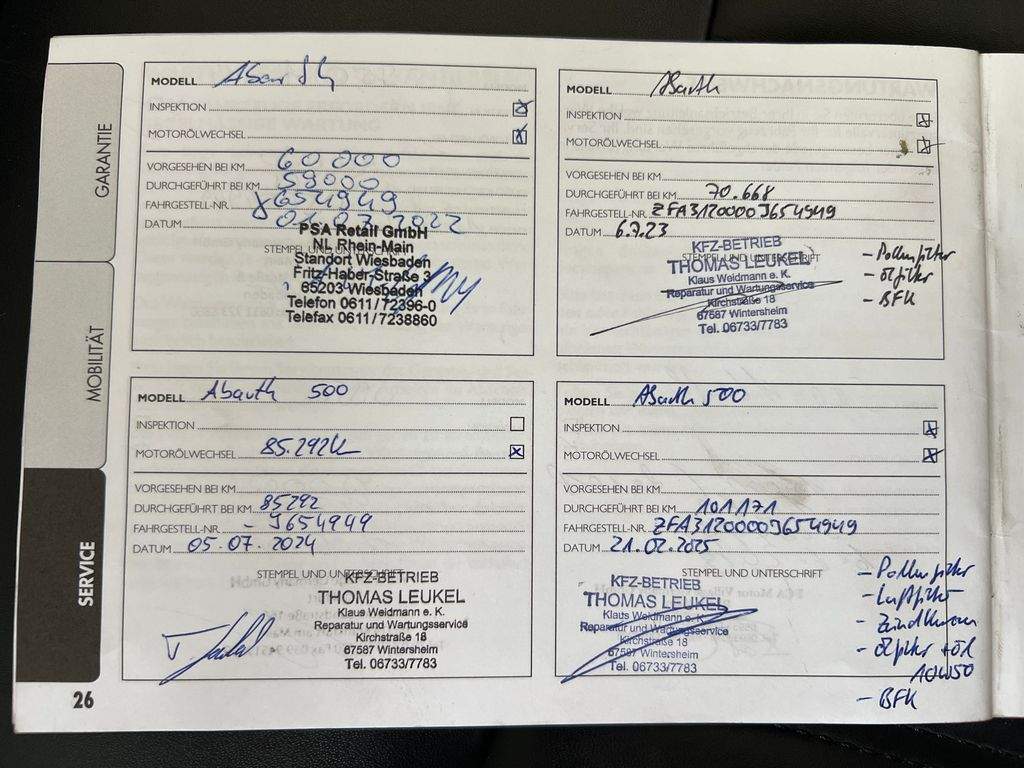 GARANTIE
MOBILITÄT
SERVICE
MODELL Abarth
INSPEKTION
MOTORÖLWECHSEL
VORGESEHEN BEI KM 60 000
DURCHGEFÜHRT BEI KM 59000
FAHRGESTELL-NR. J654949
DATUM 01.07.2022
STEMPEL UND UNTERSCHRIFT
PSA Retail GmbH
NL Rhein-Main
Standort Wiesbaden
Fritz-Haber-Straße 3
65203 Wiesbaden
Telefon 0611/72396-0
Telefax 0611/7238860
MODELL Abarth
INSPEKTION
MOTORÖLWECHSEL
VORGESEHEN BEI KM
DURCHGEFÜHRT BEI KM 70.668
FAHRGESTELL-NR. ZFA3120000J654949
DATUM 6.7.23
STEMPEL UND UNTERSCHRIFT
KFZ-BETRIEB
THOMAS LEUKEL
Klaus Weidmann e. K.
Reparatur und Wartungsservice
Kirchstraße 18
67587 Wintersheim
Tel. 06733/7783
- Pollenfilter
- Ölfilter
- BFK
MODELL Abarth 500
INSPEKTION
MOTORÖLWECHSEL 85.292
VORGESEHEN BEI KM
DURCHGEFÜHRT BEI KM 85292
FAHRGESTELL-NR. - J654949
DATUM 05.07.2024
STEMPEL UND UNTERSCHRIFT
KFZ-BETRIEB
THOMAS LEUKEL
Klaus Weidmann e. K.
Reparatur und Wartungsservice
Kirchstraße 18
67587 Wintersheim
Tel. 06733/7783
MODELL Abarth 500
INSPEKTION
MOTORÖLWECHSEL
VORGESEHEN BEI KM
DURCHGEFÜHRT BEI KM 101171
FAHRGESTELL-NR. ZFA3120000J654949
DATUM 21.02.2025
STEMPEL UND UNTERSCHRIFT
KFZ-BETRIEB
THOMAS LEUKEL
Klaus Weidmann e. K.
Reparatur und Wartungsservice
Kirchstraße 18
67587 Wintersheim
Tel. 06733/7783
- Pollenfilter
- Luftfilter
- Zündkerzen
- Ölfilter + Öl
10W50
- BFK
26